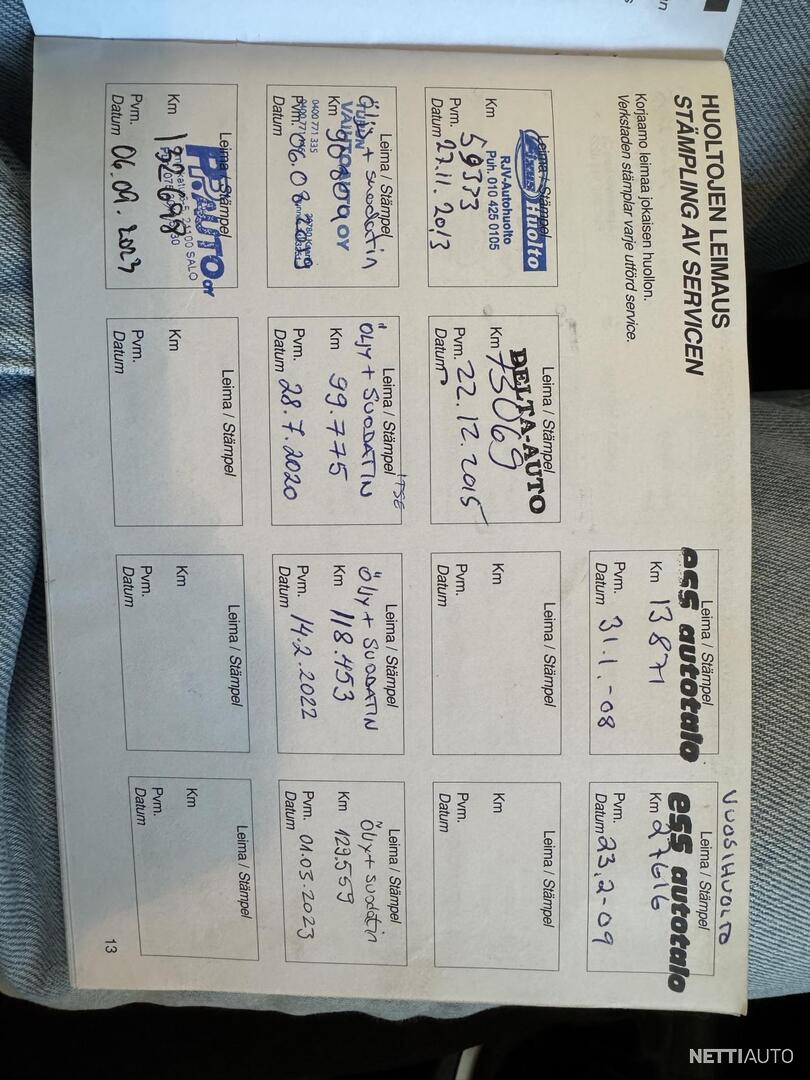 HUOLTOJEN LEIMAUS
STÄMPLING AV SERVICEN
Korjaamo leimaa jokaisen huollon.
Verkstaden stämplar varje utförd service.
Leima / Stämpel
ess autotalo
Km 13 871
Pvm.
Datum 31.1.-08
VUOSIHUOLTO
Leima / Stämpel
ess autotalo
Km 27616
Pvm.
Datum 23.2-09
Leima / Stämpel
huolto
RJV-Autohuolto
Puh. 010 425 0105
Km 59333
Pvm.
Datum 27.11.2013
Leima / Stämpel
DELTA-AUTO
Km 73069
Pvm.
Datum 22.12.2015
Leima / Stämpel
Km
Pvm.
Datum
Leima / Stämpel
Km
Pvm.
Datum
Leima / Stämpel
Öljy + suodatin
VAIHTOAUTO OY
Km
0400 771 335
Pvm.
Datum
Leima / Stämpel ITSE
ÖLJY + SUODATIN
Km 99.775
Pvm.
Datum 28.7.2020
Leima / Stämpel
ÖLJY + SUODATIN
Km 118.453
Pvm.
Datum 14.2.2022
Leima / Stämpel
Öljy + suodatin
Km 129.559
Pvm. 01.03.2023
Datum
Leima / Stämpel
PP-AUTO OY
24100 SALO
Km
Pvm.
Datum 06.09.2023
Leima / Stämpel
Km
Pvm.
Datum
Leima / Stämpel
Km
Pvm.
Datum
Leima / Stämpel
Km
Pvm.
Datum
13
NETTIAUTO